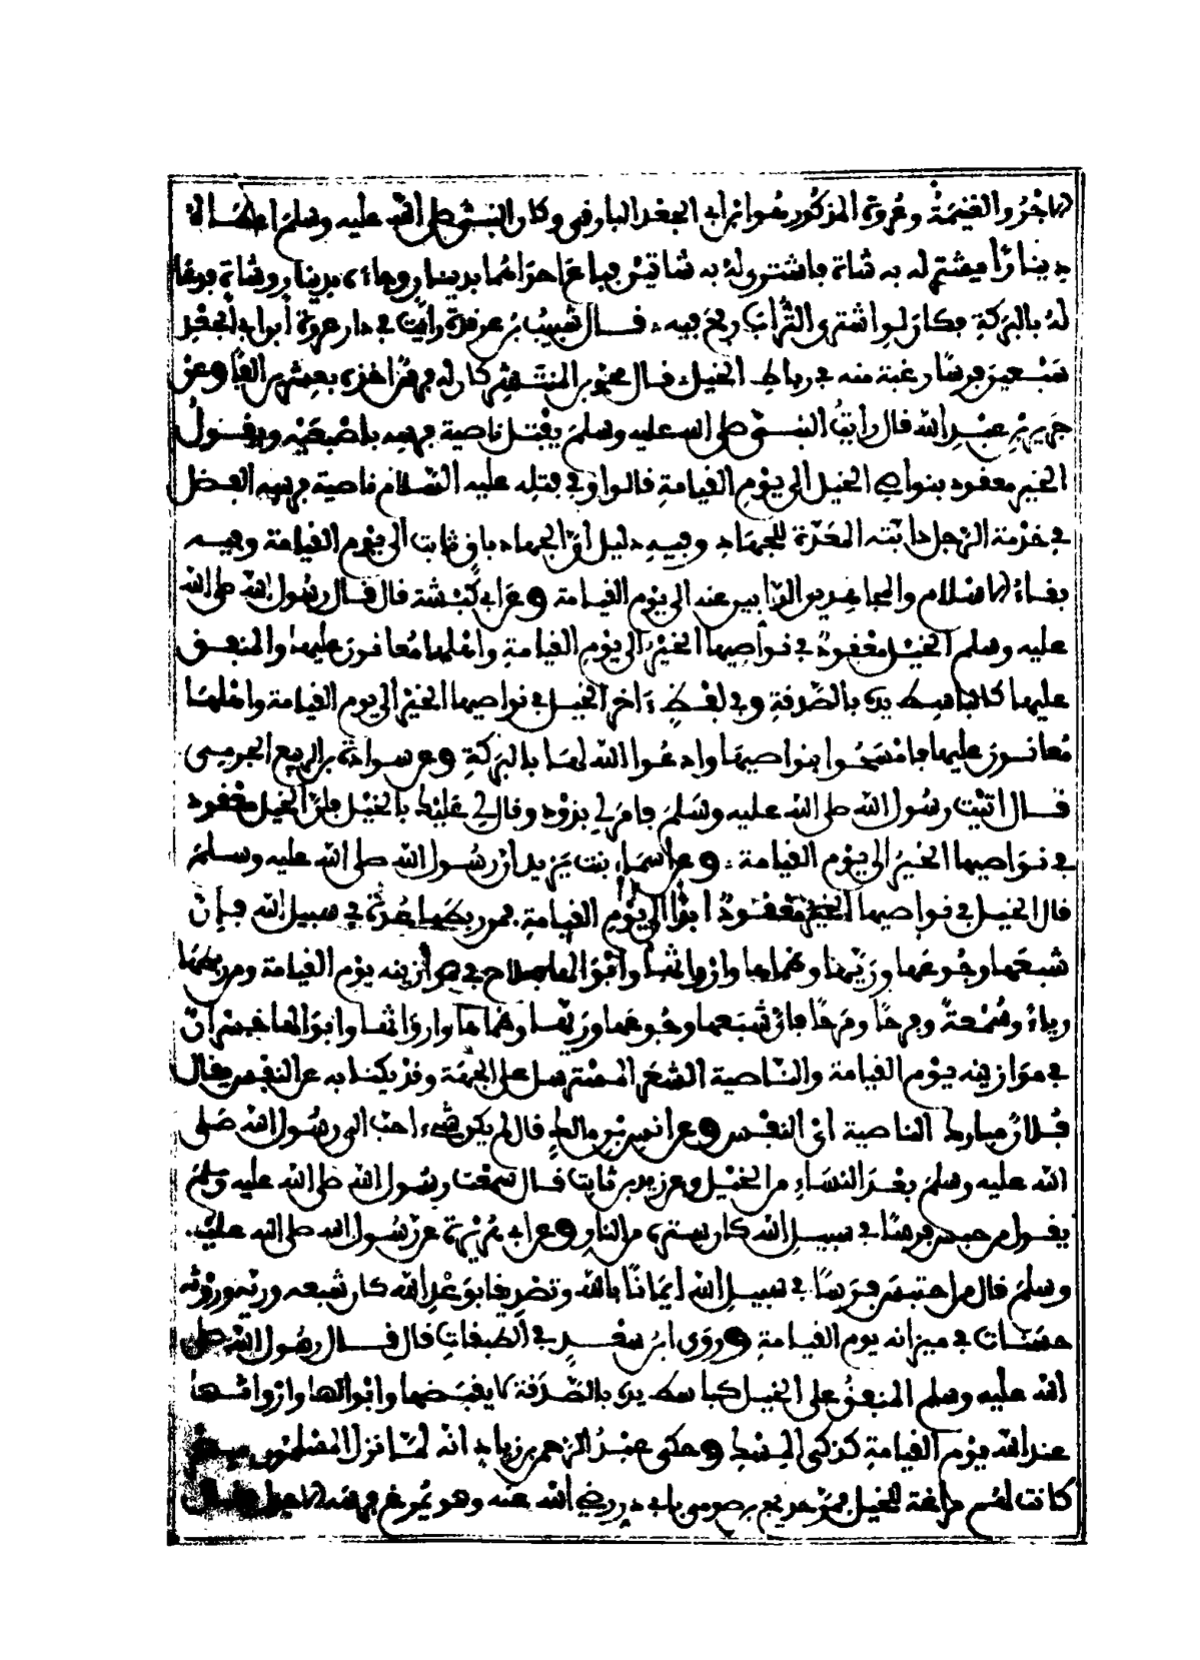 الاجر والغنيمة وعروة المذكور هو ابن ابي الجعد البارقي وكان النبي صلى الله عليه وسلم اعطاه
دينارا ليشتري له به شاة فاشترى له به شاتين فباع احداهما بدينار وجاءه بدينار وشاة فدعا
له بالبركة فكان لو اشترى التراب ربح فيه قال شبيب بن غرقدة رايت في دار عروة ابن ابي الجعد
سبعين فرسا رغبة منه في رباط الخيل قال كان له فرس اخذه بعشرين الفا وعن
جرير بن عبد الله قال رايت النبي صلى الله عليه وسلم يفتل ناصية فرسه باصبعيه ويقول
الخير معقود بنواصي الخيل الى يوم القيامة قالوا وفي فتله عليه السلام ناصية فرسه الفضل
في خدمة الرجل دابته المعدة للجهاد وفيه دليل ان الجهاد باق ثابت الى يوم القيامة وفيه
بقاء الاسلام والمجاهدين الذابين عنه الى يوم القيامة وعن ابي كبشة قال قال رسول الله صلى الله
عليه وسلم الخيل معقود في نواصيها الخير الى يوم القيامة واهلها معانون عليها والمنفق
عليها كالباسط يده بالصدقة وفي لفظ ءاخر الخيل في نواصيها الخير الى يوم القيامة واهلها
معانون عليها فامسحوا بنواصيها وادعوا الله لها بالبركة وعن سوادة بن الربيع الجرمي
قال اتيت رسول الله صلى الله عليه وسلم فامر لي بذود وقال لي عليك بالخيل فان الخيل معقود
في نواصيها الخير الى يوم القيامة وعن اسماء بنت يزيد ان رسول الله صلى الله عليه وسلم
قال الخيل في نواصيها الخير معقود ابدا الى يوم القيامة فمن ربطها عدة في سبيل الله فان
شبعها وجوعها وريها وظماها وارواثها وابوالها فلاح في موازينه يوم القيامة ومن ربطها
رياء وسمعة وفرحا ومرحا فان شبعها وجوعها وريها وظماها وارواثها وابوالها خسران
في موازينه يوم القيامة والناصية الشعر المسترسل على الجبهة وقد يكنى به عن النفس يقال
فلان مبارك الناصية اي النفس وعن انس بن مالك قال لم يكن شيء احب الى رسول الله صلى
الله عليه وسلم بعد النساء من الخيل وعن زيد بن ثابت قال سمعت رسول الله صلى الله عليه وسلم
يقول من حبس فرسا في سبيل الله كان ستره من النار وعن ابي هريرة عن رسول الله صلى الله عليه
وسلم قال من احتبس فرسا في سبيل الله ايمانا بالله وتصديقا بوعد الله كان شبعه وريه وروثه
حسنات في ميزانه يوم القيامة وروى ابن سعد في الطبقات قال قال رسول الله صلى
الله عليه وسلم المنفق على الخيل كباسط يده بالصدقة لا يقبضها وابوالها وارواثها
عند الله يوم القيامة كذكي المسك وحكى عبد الرحمن بن زياد انه لما نزل المسلمون
كانت لهم مراغة للخيل فمر حديج بن صومي بابي ذر رضي الله عنه وهو يمرغ فرسه